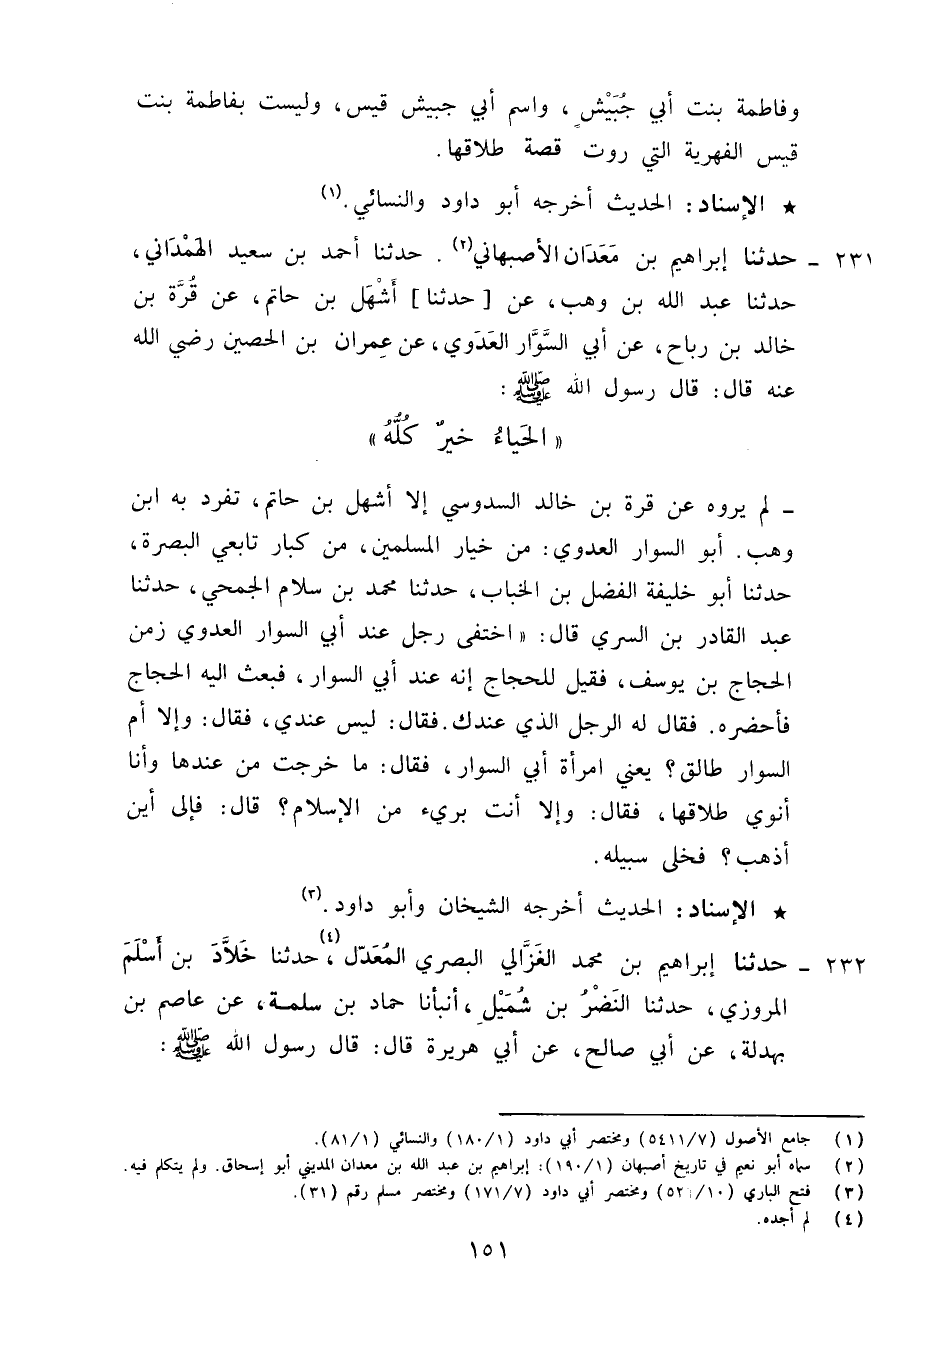 وفاطمة بنت أبي جُبَيْشٍ، واسم أبي جبيش قيس، وليست بفاطمة بنت
قيس الفهرية التي روت قصة طلاقها.
★ الإسناد: الحديث أخرجه أبو داود والنسائي.(١)
٢٣١ ـ حدثنا إبراهيم بن مَعَدَان الأصبهاني(٢). حدثنا أحمد بن سعيد الهَمْدَاني،
حدثنا عبد الله بن وهب، عن [حدثنا] أَشْهَل بن حاتم، عن قُرَّة بن
خالد بن رباح، عن أبي السَّوَّار العَدَوي، عن عِمران بن الحصين رضي الله
عنه قال: قال رسول الله ﷺ:
«الحَياءُ خيرٌ كُلُّهُ»
ـ لم يروه عن قرة بن خالد السدوسي إلا أشهل بن حاتم، تفرد به ابن
وهب. أبو السوار العدوي: من خيار المسلمين، من كبار تابعي البصرة،
حدثنا أبو خليفة الفضل بن الخباب، حدثنا محمد بن سلام الجمحي، حدثنا
عبد القادر بن السري قال: «اختفى رجل عند أبي السوار العدوي زمن
الحجاج بن يوسف، فقيل للحجاج إنه عند أبي السوار، فبعث اليه الحجاج
فأحضره. فقال له الرجل الذي عندك. فقال: ليس عندي، فقال: وإلا أم
السوار طالق؟ يعني امرأة أبي السوار، فقال: ما خرجت من عندها وأنا
أنوي طلاقها، فقال: وإلا أنت بريء من الإسلام؟ قال: فإلى أين
أذهب؟ فخلى سبيله.
★ الإسناد: الحديث أخرجه الشيخان وأبو داود.(٣)
٢٣٢ ـ حدثنا إبراهيم بن محمد الغَزَّالي البصري المُعَدّل(٤)، حدثنا خَلاَّدَ بن أَسْلَمَ
المروزي، حدثنا النَضْرُ بن شُمَيْلِ، أنبأنا حماد بن سلمة، عن عاصم بن
بهدلة، عن أبي صالح، عن أبي هريرة قال: قال رسول الله ﷺ:
(١) جامع الأصول (٥٤١١/٧) ومختصر أبي داود (١٨٠/١) والنسائي (٨١/١).
(٢) سماه أبو نعيم في تاريخ أصبهان (١٩٠/١): إبراهيم بن عبد الله بن معدان المديني أبو إسحاق. ولم يتكلم فيه.
(٣) فتح الباري ومختصر أبي داود (١٧١/٧) ومختصر مسلم رقم (٣١).
(٤) لم أجده.
١٥١